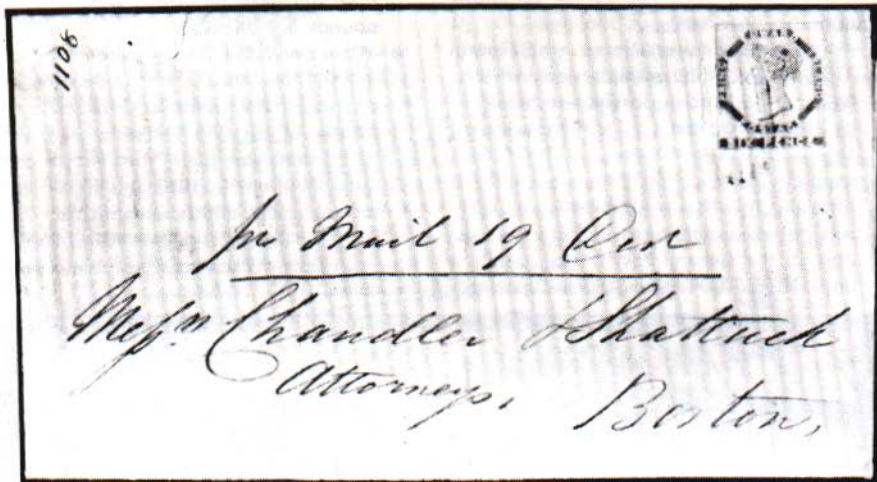 1108
SIX PENCE
Mail 19
Messrs Chandler & Shattuck
Attorneys,
Boston,